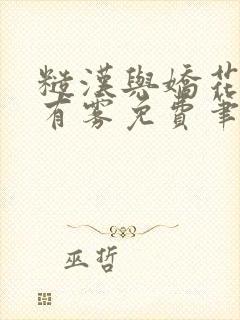 糙漢與嬌花
有雾免費筆
巫哲